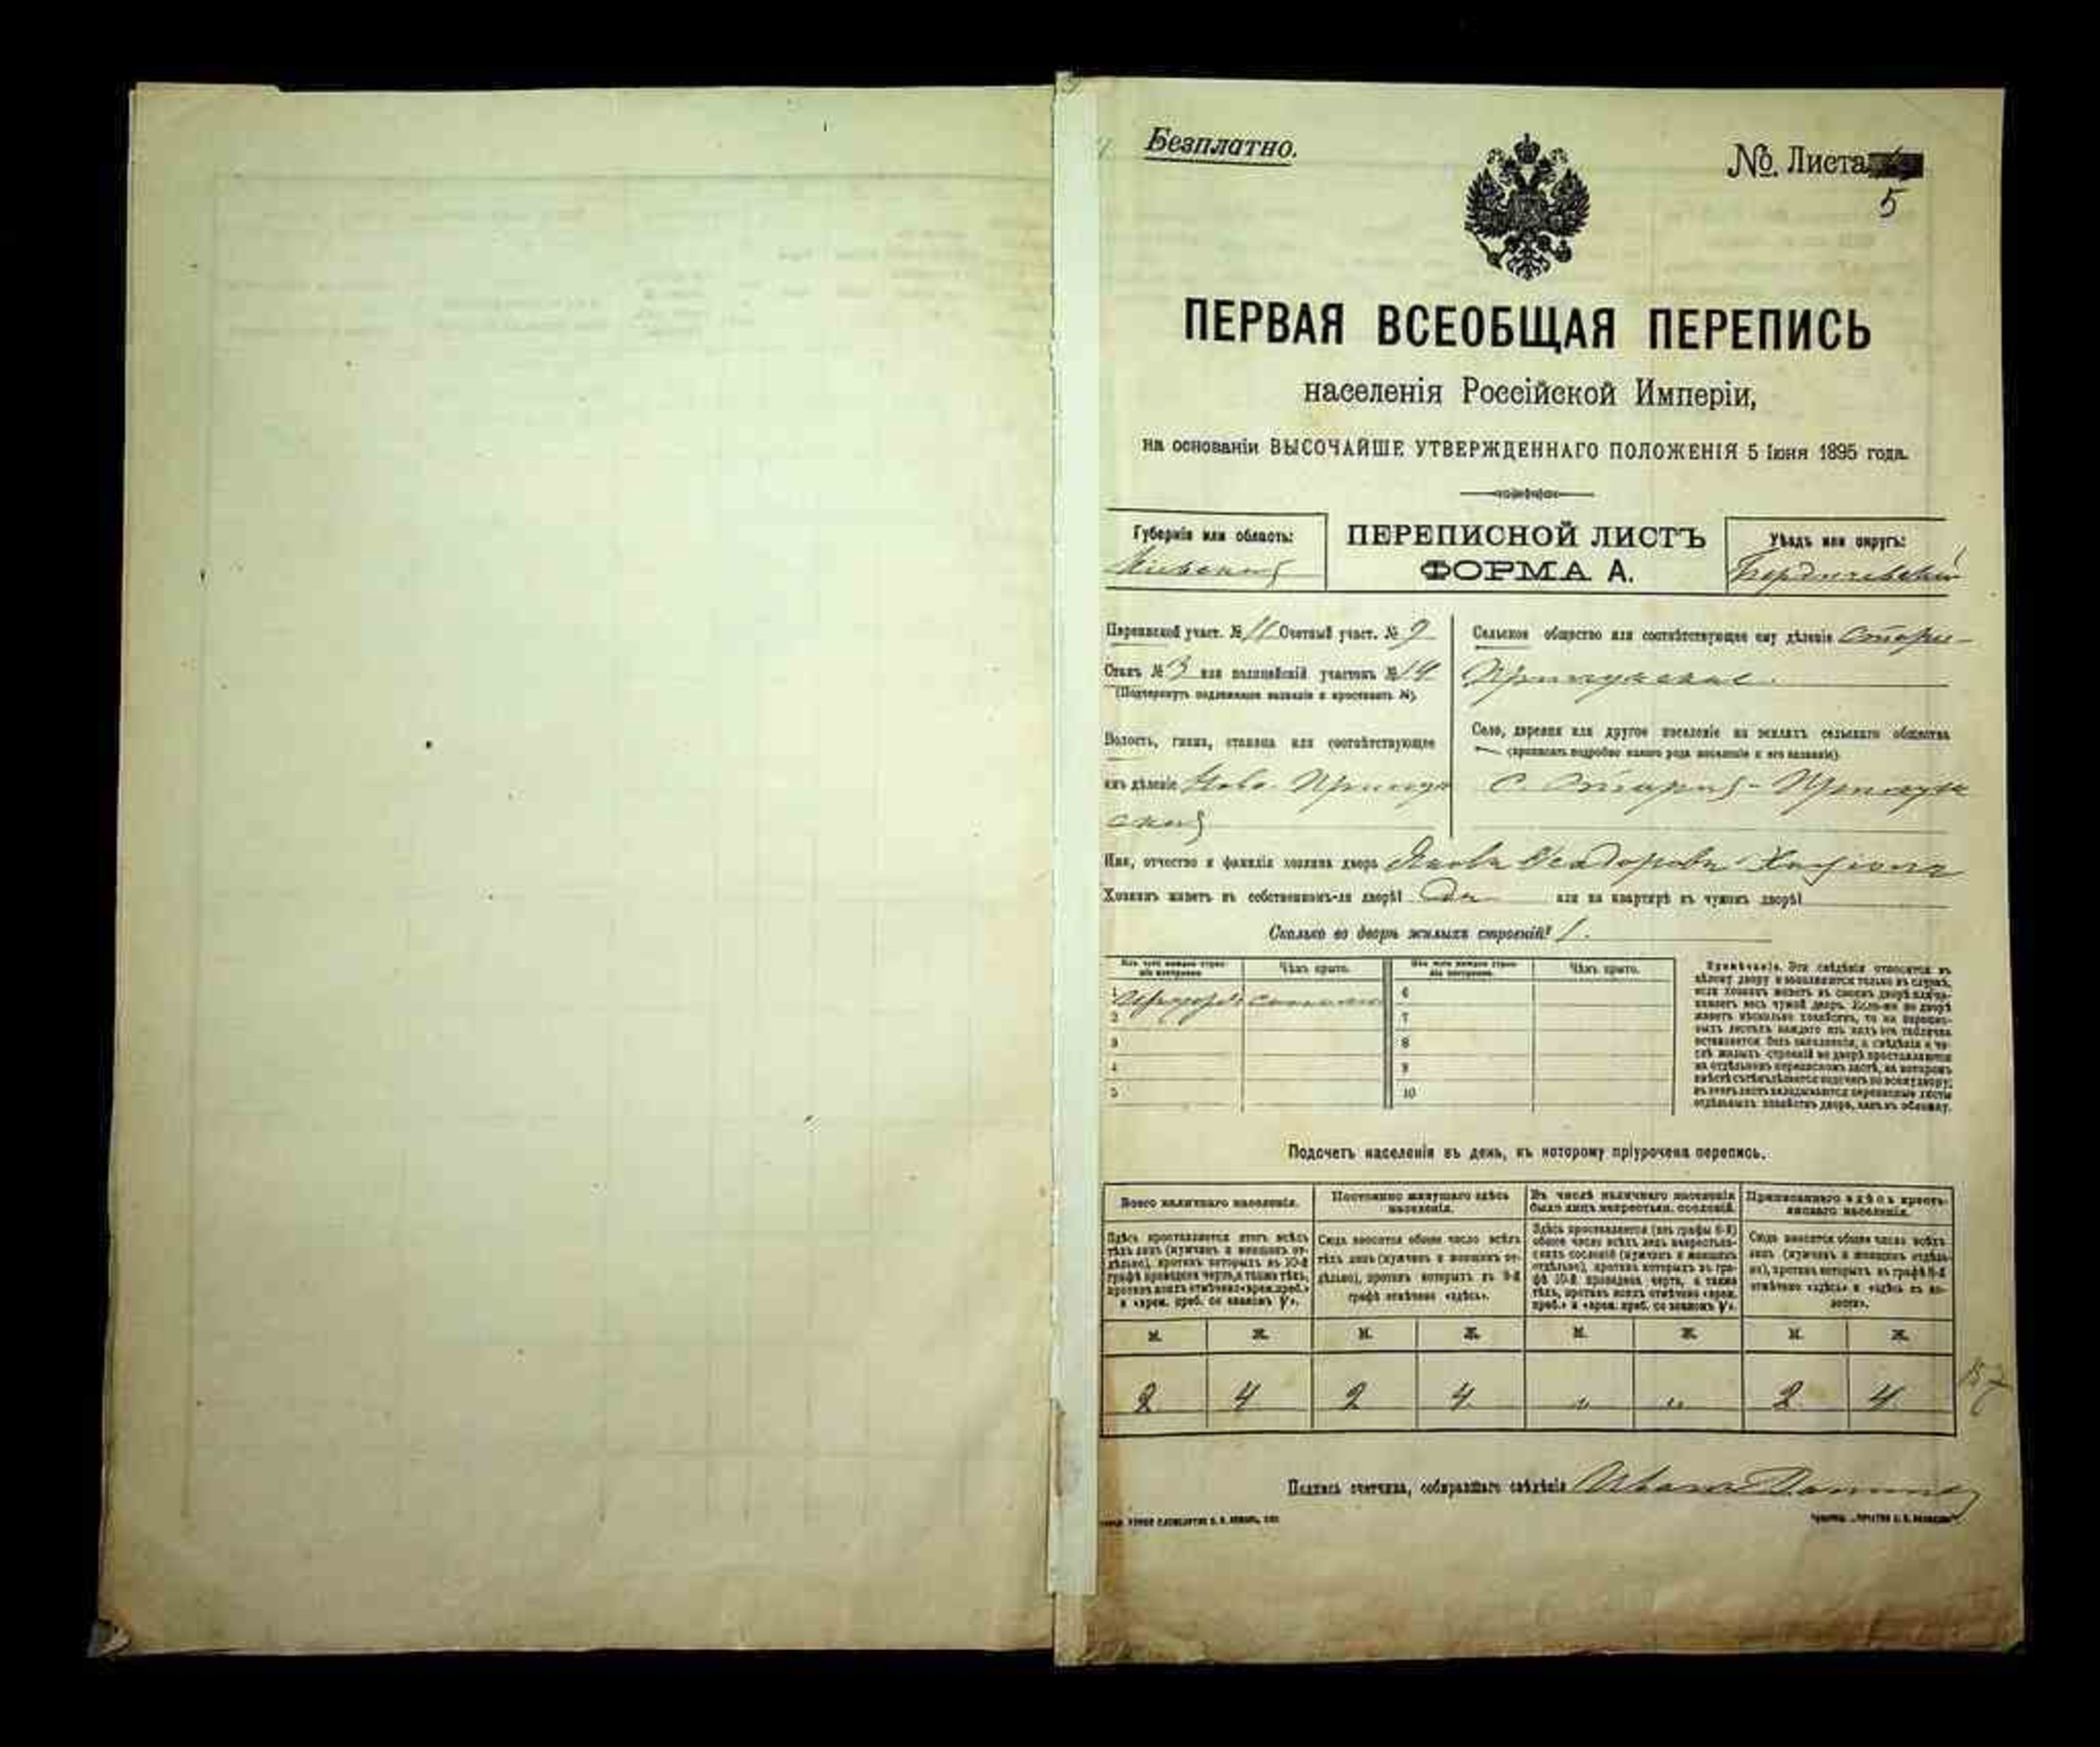 Безплатно.
№. Листа
5
ПЕРВАЯ ВСЕОБЩАЯ ПЕРЕПИСЬ
населенія Россійской Имперіи,
на основаніи ВЫСОЧАЙШЕ УТВЕРЖДЕННАГО ПОЛОЖЕНІЯ 5 Іюня 1895 года.
Губернія или область:
Кіевская
ПЕРЕПИСНОЙ ЛИСТЪ
ФОРМА А.
Уѣздъ или округъ:
Бердичевскій
Переписной участ. № 11 Счетный участ. № 9
Станъ № 3 или полицейскій участокъ № 14
(Подчеркнуть подлежащее названіе и проставить №).
Волость, гмина, станица или соотвѣтствующее
имъ дѣленіе Ново-Прилук
ская
Сельское общество или соотвѣтствующее ему дѣленіе Старо-
Прилукское.
Село, деревня или другое поселеніе на земляхъ сельскаго общества
(прописать подробно какого рода поселеніе и его названіе).
с. Старая-Прилука
Имя, отчество и фамилія хозяина двора Яковъ
Хозяинъ живетъ въ собственномъ-ли дворѣ? Да или на квартирѣ въ чужомъ дворѣ?
Сколько во дворѣ жилыхъ строеній? 1.
Изъ чего каждое строеніе построено.
Чѣмъ крыто.
Изъ чего каждое строеніе построено.
Чѣмъ крыто.
1 соломою 6
2 7
3 8
4 9
5 10
Примѣчаніе. Эти свѣдѣнія относятся къ
цѣлому двору и заполняются только въ случаѣ,
если хозяинъ живетъ въ своемъ дворѣ или за-
нимаетъ весь чужой дворъ. Если-же во дворѣ
живетъ нѣсколько хозяйствъ, то на перепис-
ныхъ листахъ каждаго изъ нихъ эта табличка
оставляется безъ заполненія, а свѣдѣнія о чи-
слѣ жилыхъ строеній во дворѣ проставляются
на отдѣльномъ переписномъ листѣ, на которомъ
вмѣстѣ съ тѣмъ дѣлается подсчетъ по всему двору;
въ этотъ листъ вкладываются переписные листы
отдѣльныхъ хозяйствъ двора, какъ въ обложку.
Подсчетъ населенія въ день, къ которому пріурочена перепись.
Всего наличнаго населенія.
Постоянно живущаго здѣсь
населенія.
Въ числѣ наличнаго населенія
было лицъ некрестьян. сословій.
Приписаннаго здѣсь кресть-
янскаго населенія.
Здѣсь проставляется итогъ всѣхъ
тѣхъ лицъ (мужчинъ и женщинъ от-
дѣльно), противъ которыхъ въ 10-й
графѣ проведена черта, а также тѣхъ,
противъ коихъ отмѣчено «врем. преб.»
и «врем. преб. со знакомъ V».
Сюда вносится общее число всѣхъ
тѣхъ лицъ (мужчинъ и женщинъ от-
дѣльно), противъ которыхъ въ 9-й
графѣ отмѣчено «здѣсь».
Здѣсь проставляется (изъ графы 6-й)
общее число всѣхъ лицъ некрестьян-
скихъ сословій (мужчинъ и женщинъ
отдѣльно), противъ которыхъ въ гра-
фѣ 10-й проведена черта, а также
тѣхъ, противъ коихъ отмѣчено «врем.
преб.» и «врем. преб. со знакомъ V».
Сюда вносится общее число всѣхъ
лицъ (мужчинъ и женщинъ отдѣль-
но), противъ которыхъ въ графѣ 8-й
отмѣчено «здѣсь» и «здѣсь въ во-
лости».
М. Ж. М. Ж. М. Ж. М. Ж.
2 4 2 4 „ „ 2 4
Подпись счетчика, собиравшаго свѣдѣнія Иванъ